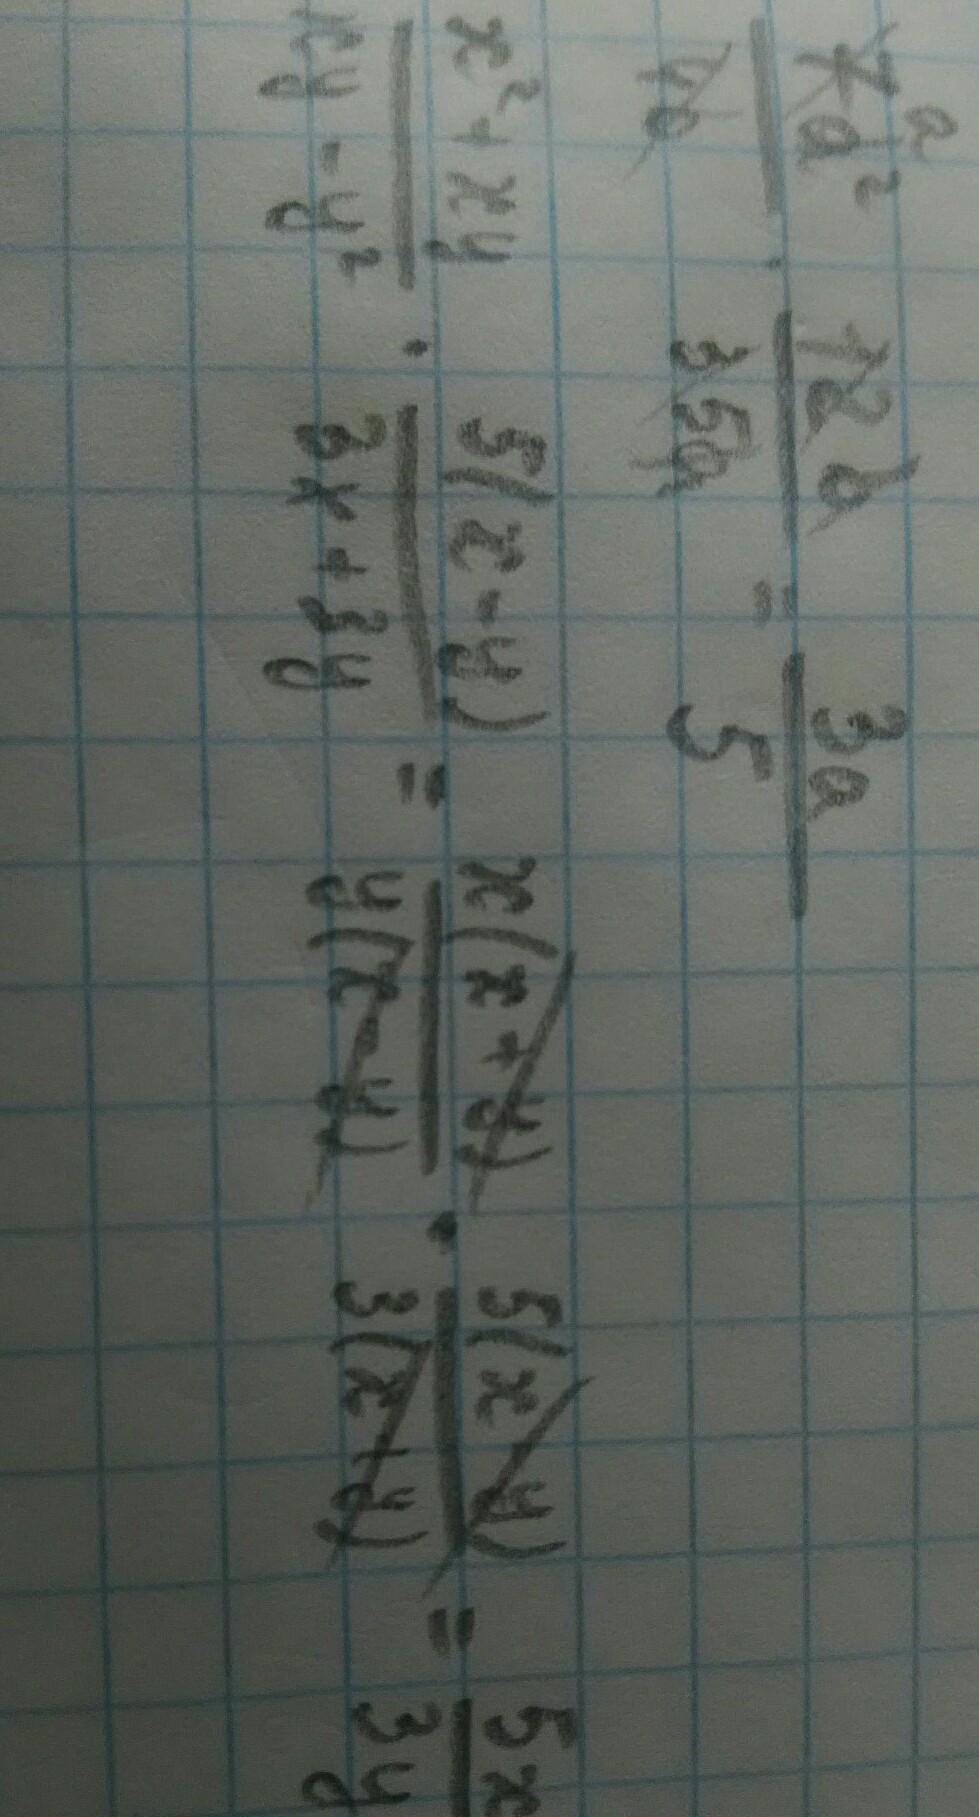 7a² / 4b · 12b / 35a = 3a / 5
x² + xy / xy - y² · 5(x - y) / 3x + 3y = x(x + y) / y(x - y) · 5(x - y) / 3(x + y) = 5x / 3y